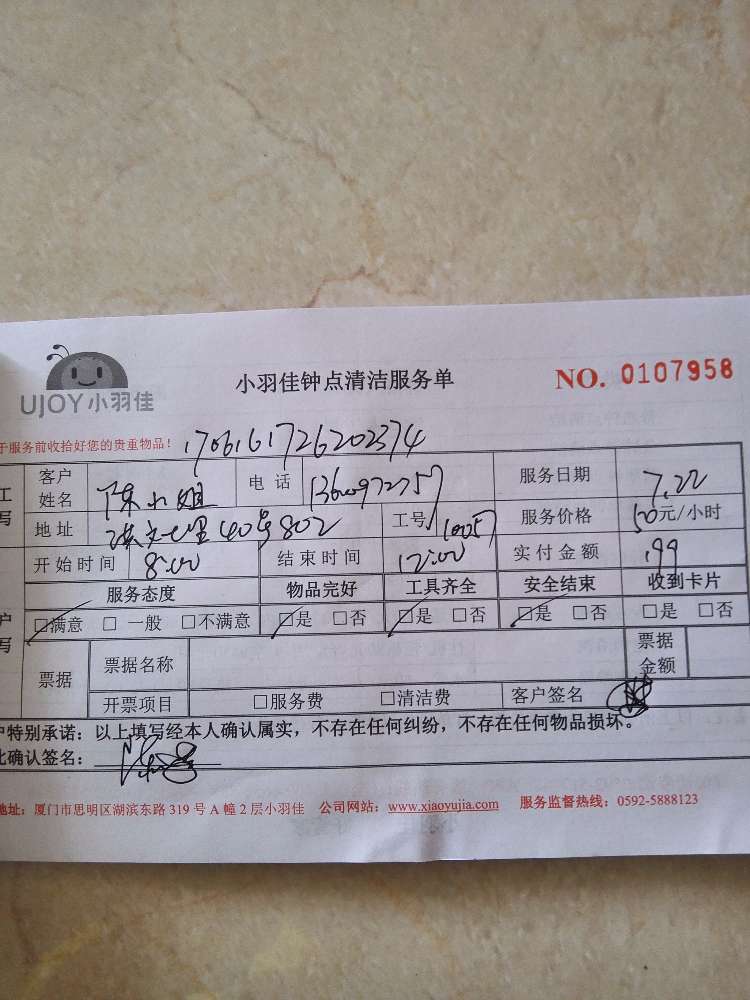 UJOY小羽佳
小羽佳钟点清洁服务单
NO. 0107958
于服务前收拾好您的贵重物品！ 1706161726202374
工 客户姓名 陈小姐 电话 服务日期 7.22
写 地址 40号802 工号 1005 服务价格 50元/小时
开始时间 8:00 结束时间 12:00 实付金额 199
服务态度 物品完好 工具齐全 安全结束 收到卡片
户写 □满意 □ 一般 □不满意 □是 □否 □是 □否 □是 □否 □是 □否
票据 票据名称 票据金额
开票项目 □服务费 □清洁费 客户签名
户特别承诺：以上填写经本人确认属实，不存在任何纠纷，不存在任何物品损坏。
此确认签名：
地址：厦门市思明区湖滨东路 319 号 A 幢 2 层小羽佳 公司网站：www.xiaoyujia.com 服务监督热线：0592-5888123